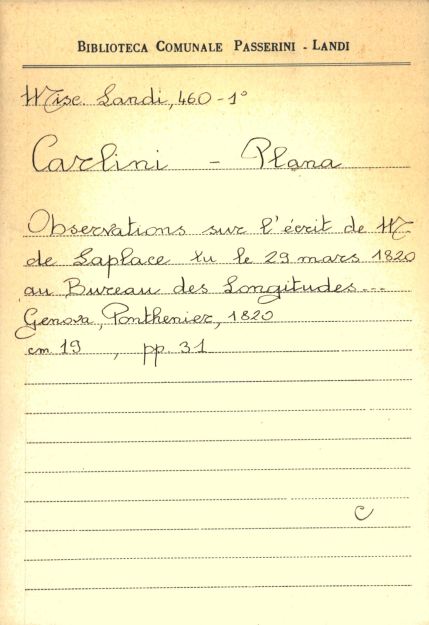 BIBLIOTECA COMUNALE PASSERINI - LANDI
Misc. Landi, 460-1°
Carlini - Plana
Observations sur l'écrit de M.
de Laplace lu le 29 mars 1820
au Bureau des Longitudes...
Genova, Ponthenier, 1820
cm 19 , pp. 31
C